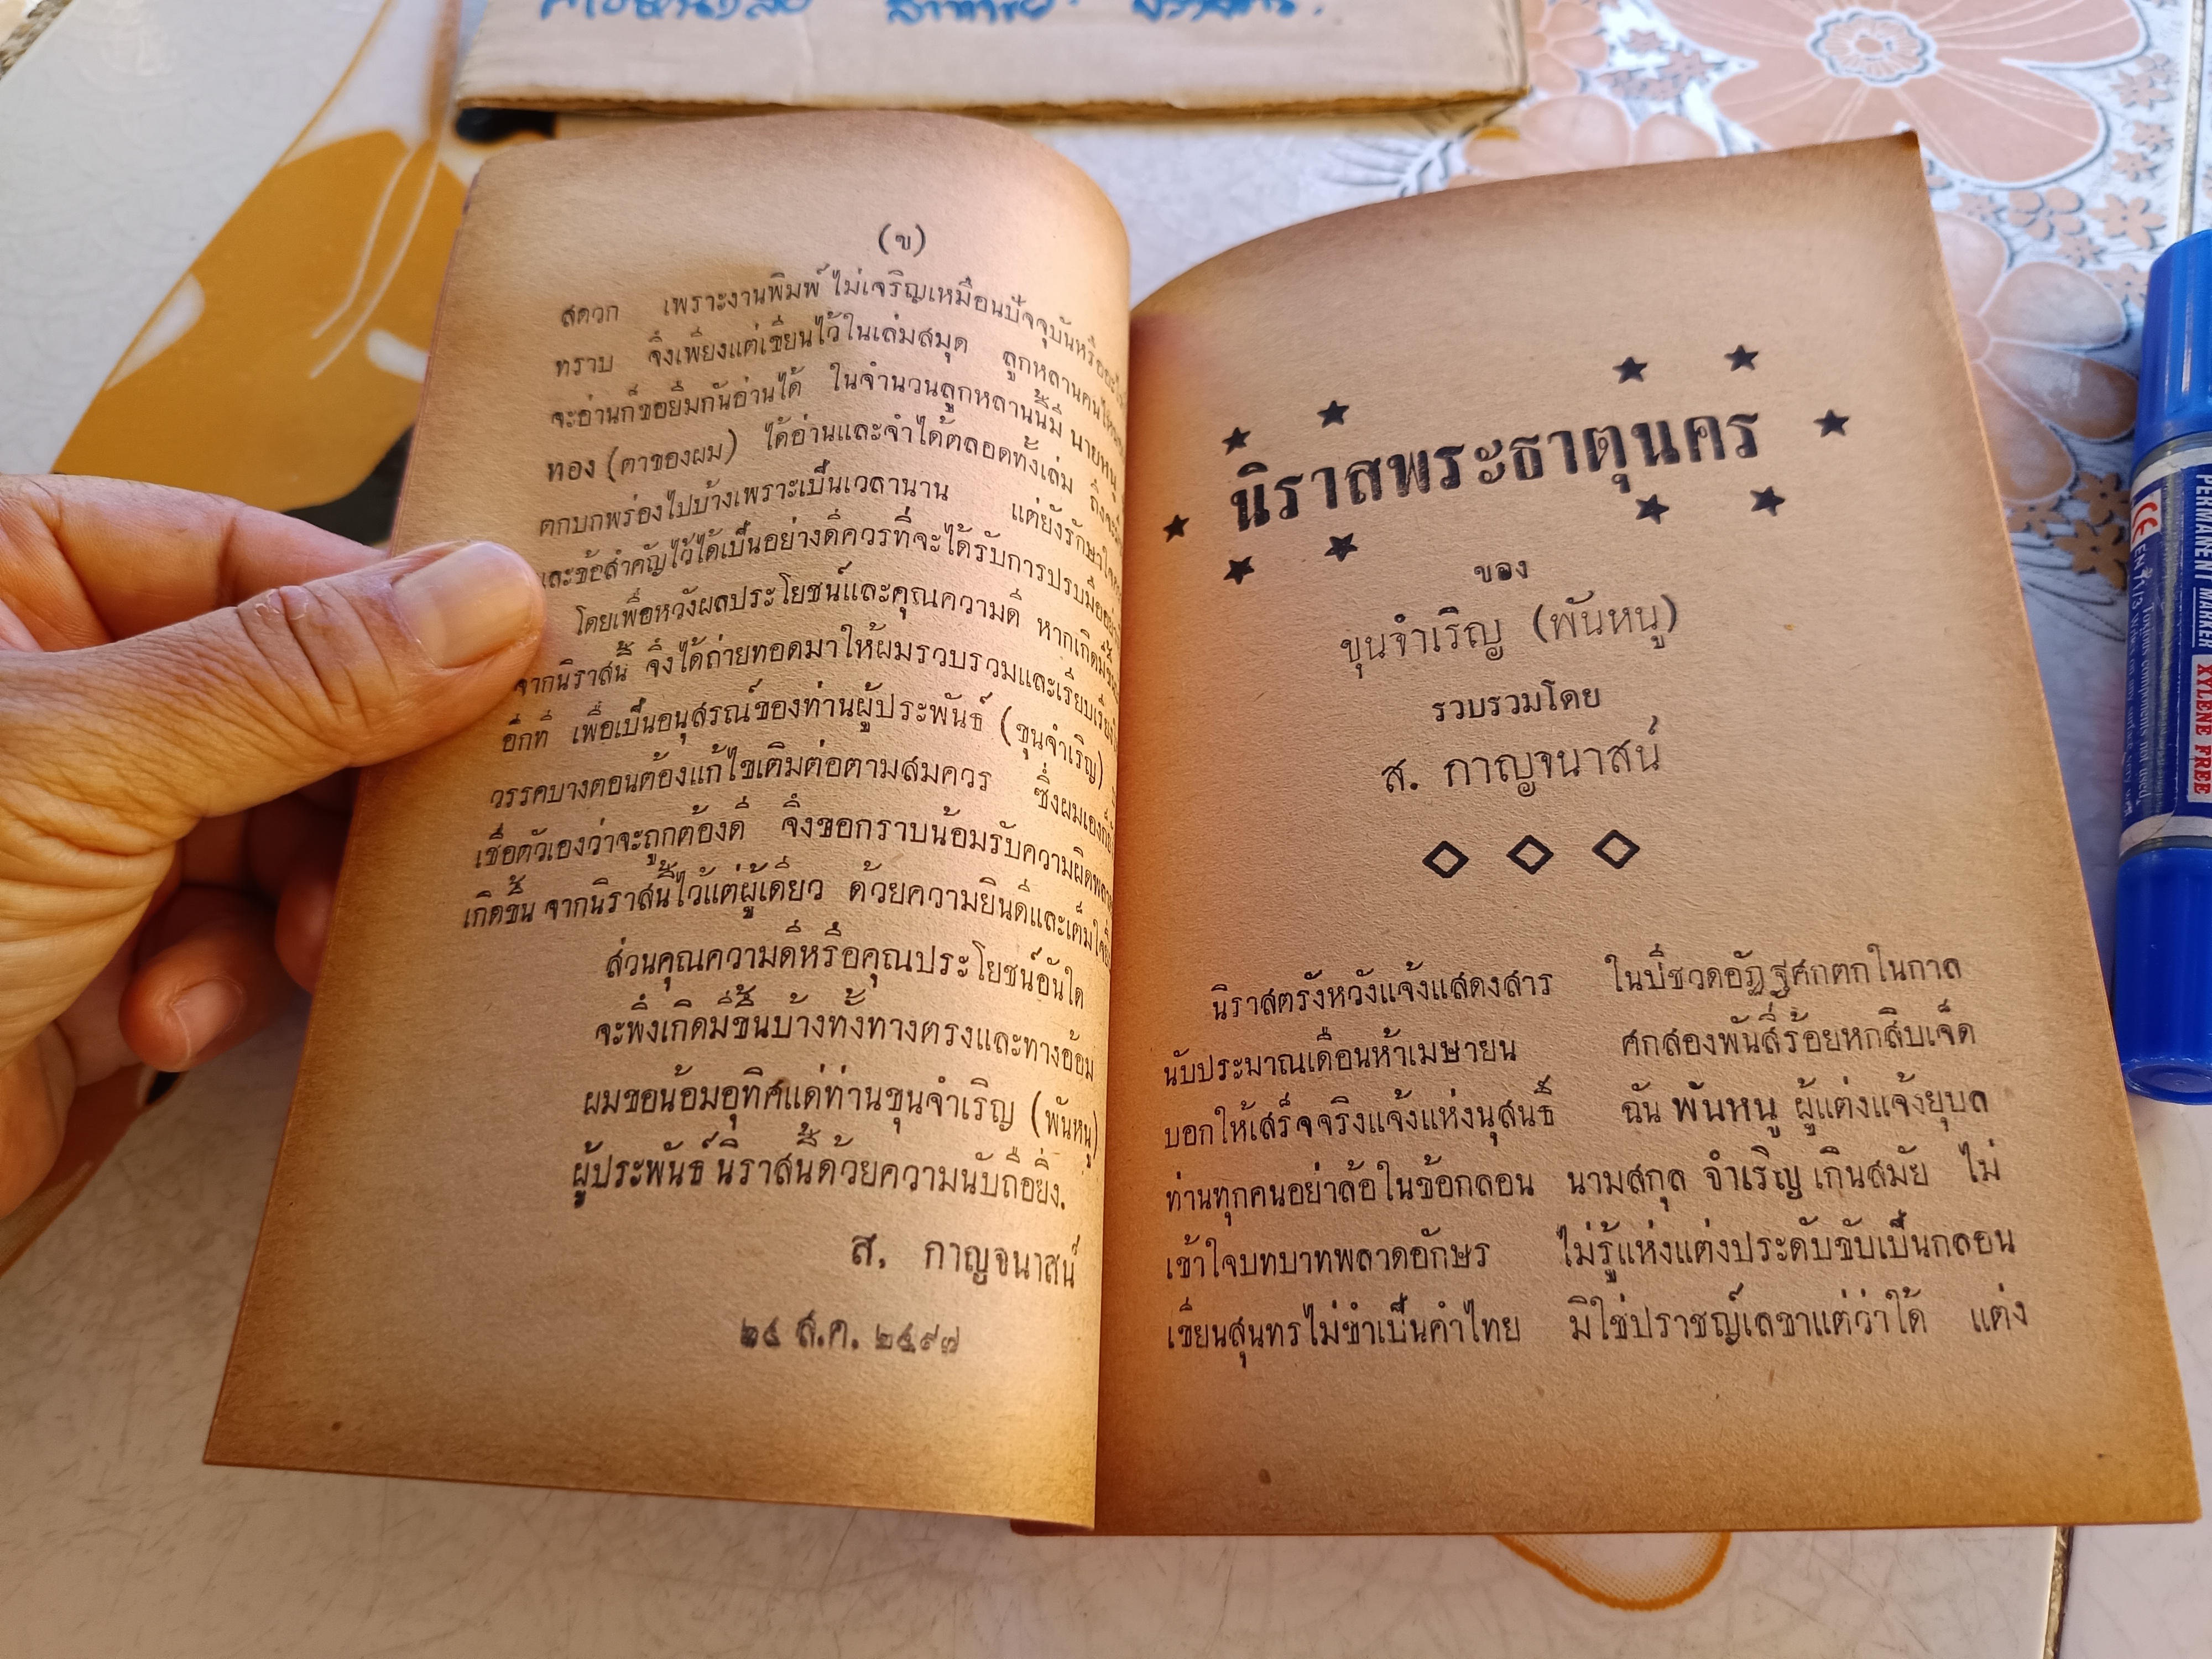 (ข)
สดวก เพราะงานพิมพ์ ไม่เจริญเหมือนปัจจุบันหรืออะไร
ทราบ จึงเพียงแต่เขียนไว้ในเล่มสมุด ลูกหลานคนไหน
จะอ่านก็ขอยืมกันอ่านได้ ในจำนวนลูกหลานนี้มี นายหนู
ทอง (ตาของผม) ได้อ่านและจำได้ตลอดทั้งเล่ม ถึงจะ
ตกบกพร่องไปบ้างเพราะเป็นเวลานาน แต่ยังรักษาใจ
และข้อสำคัญไว้ได้เป็นอย่างดีควรที่จะได้รับการปรบมือ
โดยเพื่อหวังผลประโยชน์และคุณความดี หากเกิดมี
จากนิราสนี้ จึงได้ถ่ายทอดมาให้ผมรวบรวมและเรียบเรียง
อีกที เพื่อเป็นอนุสรณ์ของท่านผู้ประพันธ์ (ขุนจำเริญ)
วรรคบางตอนต้องแก้ไขเติมต่อตามสมควร ซึ่งผมเอง
เชื่อตัวเองว่าจะถูกต้องดี จึงขอกราบน้อมรับความผิดพลาด
เกิดขึ้น จากนิราสนี้ไว้แต่ผู้เดียว ด้วยความยินดีและเต็มใจ
ส่วนคุณความดีหรือคุณประโยชน์อันใด
จะพึงเกิดมีขึ้นบ้างทั้งทางตรงและทางอ้อม
ผมขอน้อมอุทิศแด่ท่านขุนจำเริญ (พันหนู)
ผู้ประพันธ์ นิราสนี้ด้วยความนับถือยิ่ง.
ส. กาญจนาสน์
๒๔ ส.ค. ๒๔๙๗
นิราสพระธาตุนคร
ของ
ขุนจำเริญ (พันหนู)
รวบรวมโดย
ส. กาญจนาสน์
นิราสตรังหวังแจ้งแสดงสาร ในปีชวดอัฏฐศกตกในกาล
นับประมาณเดือนห้าเมษายน ศกสองพันสี่ร้อยหกสิบเจ็ด
บอกให้เสร็จจริงแจ้งแห่งนุสนธิ์ ฉัน พันหนู ผู้แต่งแจ้งยุบล
ท่านทุกคนอย่าล้อในข้อกลอน นามสกุล จำเริญ เกินสมัย ไม่
เข้าใจบทบาทพลาดอักษร ไม่รู้แห่งแต่งประดับขับเป็นกลอน
เขียนสุนทรไม่ขำเป็นคำไทย มิใช่ปราชญ์เลขาแต่ว่าได้ แต่ง
PERMANENT MARKER
XYLENE FREE
CE